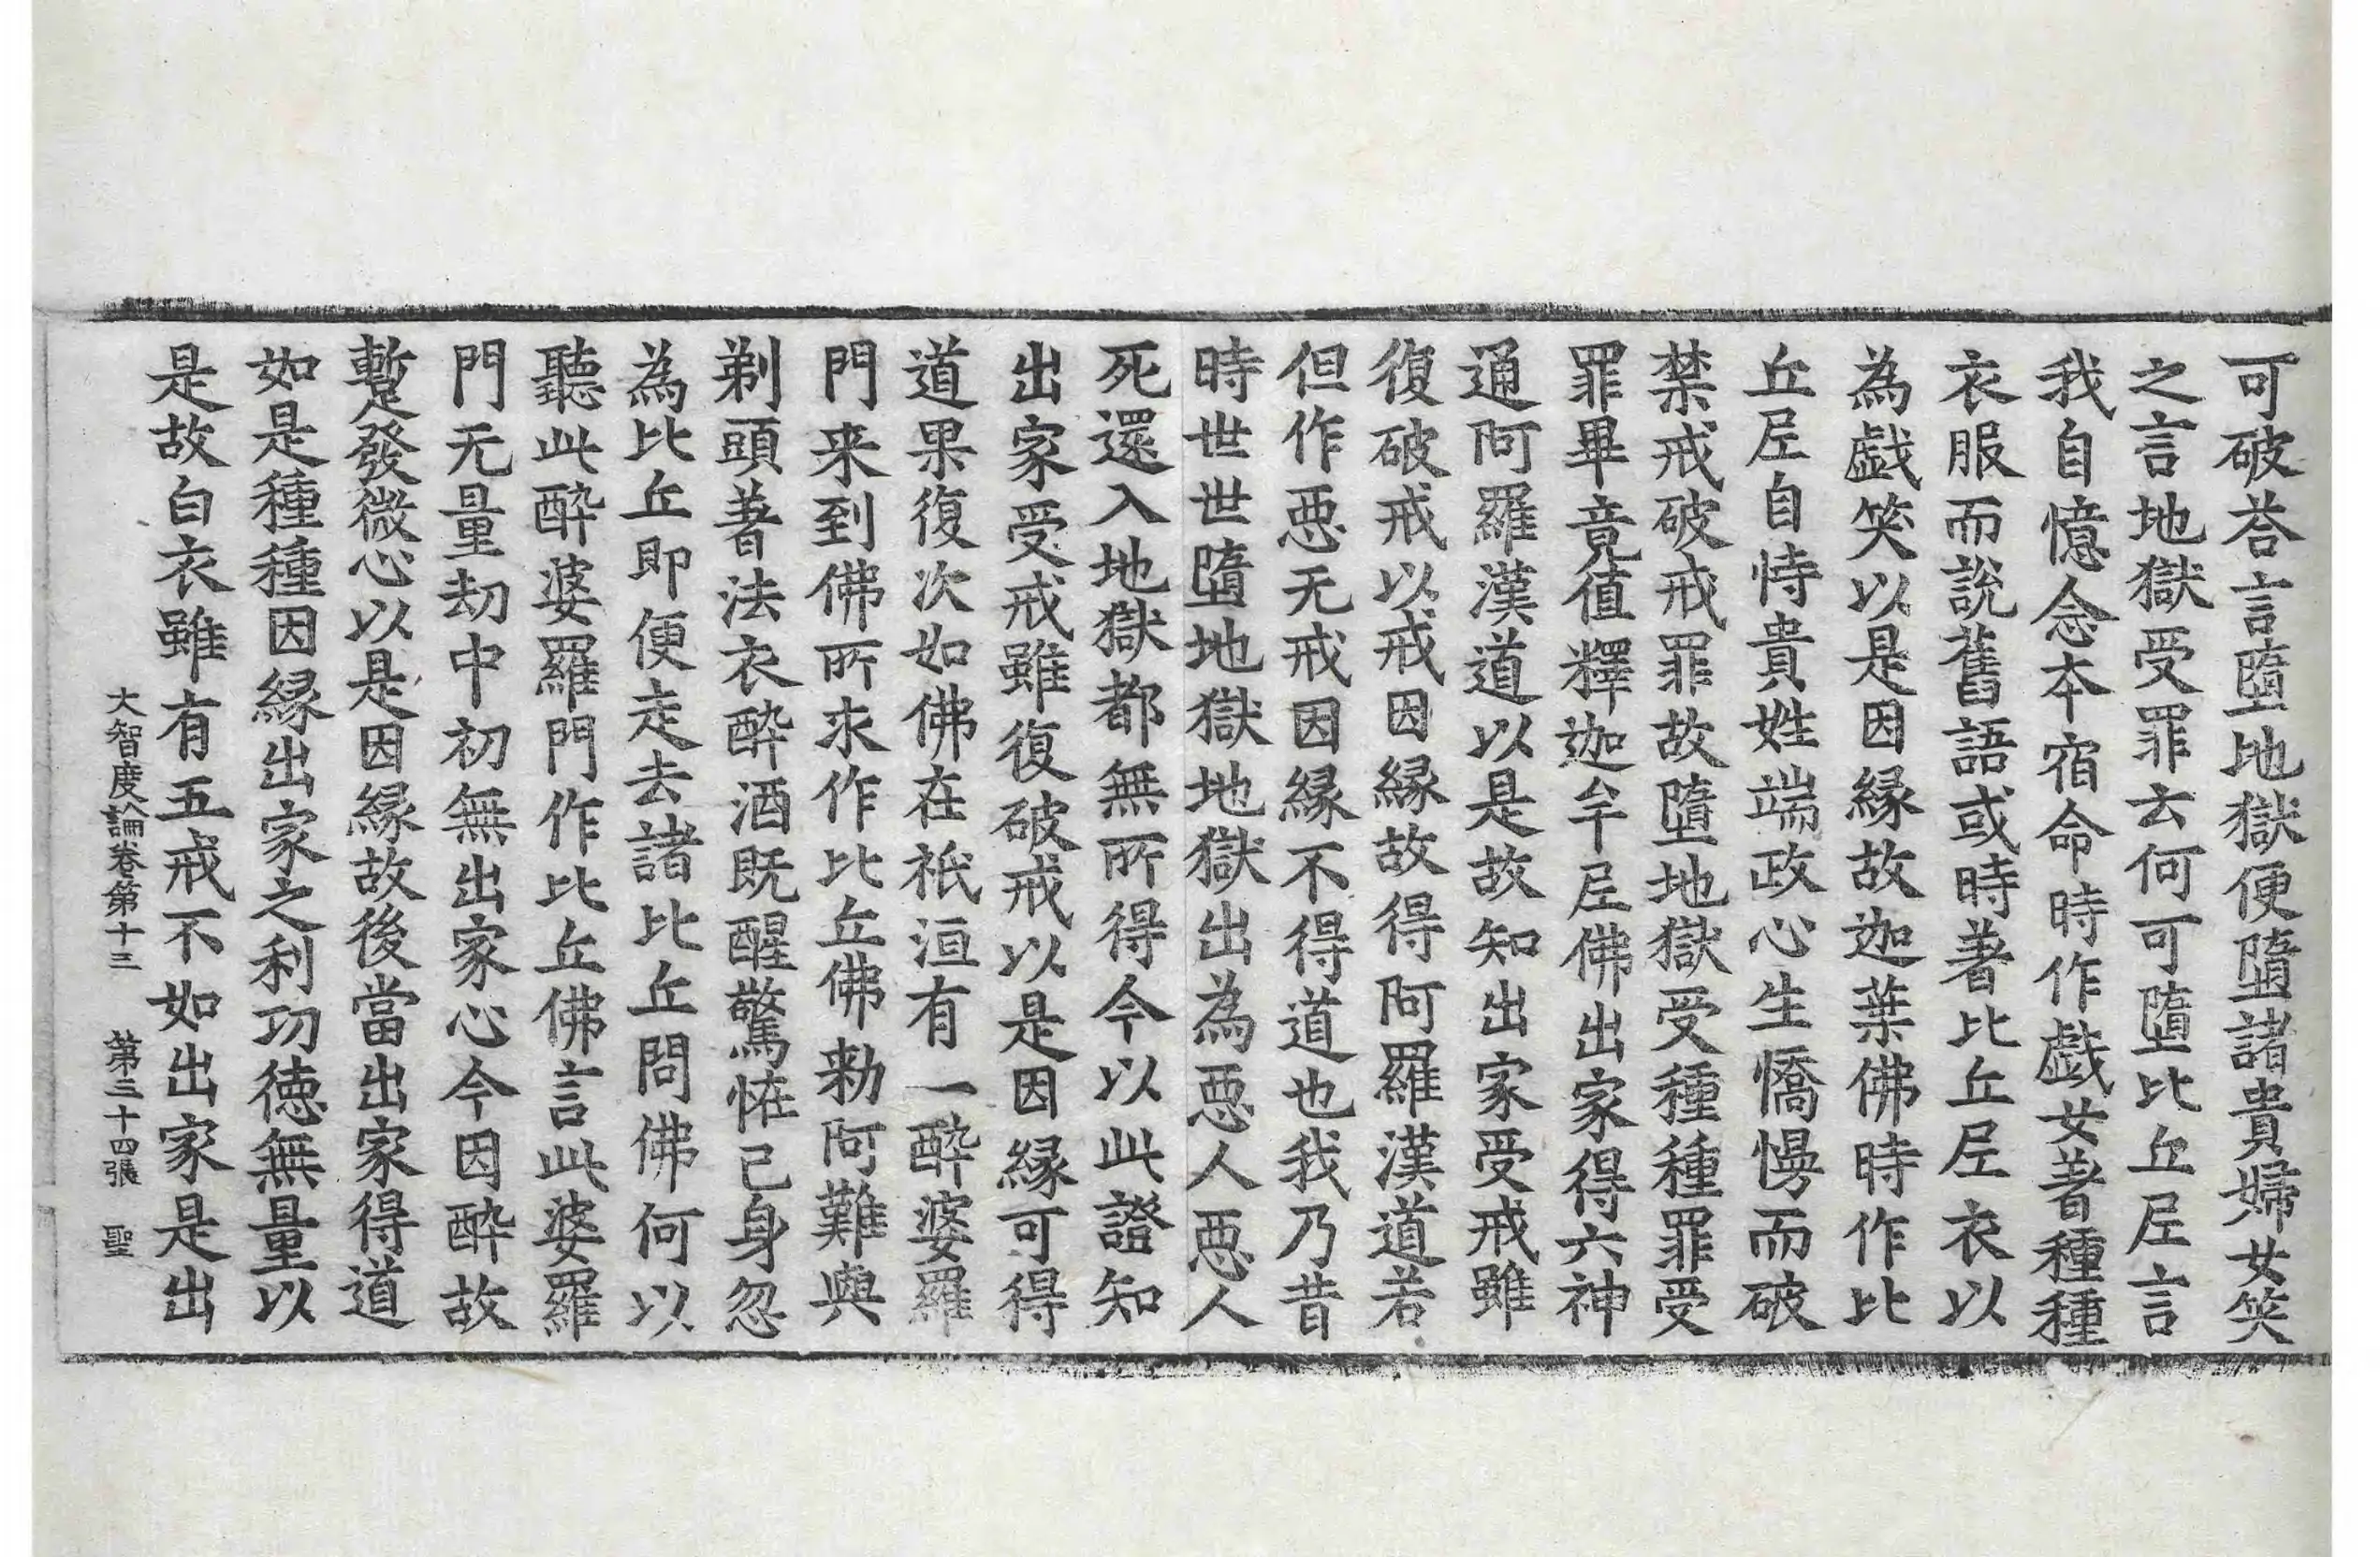 可破荅言墮地獄便墮諸貴婦女笑
之言地獄受罪云何可墮比丘尼言
我自憶念本宿命時作戱女著種種
衣服而說舊語或時著比丘尼衣以
為戱笑以是因緣故迦葉佛時作比
丘尼自恃貴姓端政心生憍慢而破
禁戒破戒罪故墮地獄受種種罪受
罪畢竟值釋迦牟尼佛出家得六神
通阿羅漢道以是故知出家受戒雖
復破戒以戒因緣故得阿羅漢道若
但作惡无戒因緣不得道也我乃昔
時世世墮地獄地獄出為惡人惡人
死還入地獄都無所得今以此證知
出家受戒雖復破戒以是因緣可得
道果復次如佛在祇洹有一醉婆羅
門来到佛所求作比丘佛勑阿難與
剃頭著法衣醉酒既醒驚恠己身忽
為比丘即便走去諸比丘問佛何以
聽此醉婆羅門作比丘佛言此婆羅
門无量劫中初無出家心今因醉故
暫發微心以是因緣故後當出家得道
如是種種因緣出家之利功德無量以
是故白衣雖有五戒不如出家是出
大智度論卷第十三 第三十四張 聖